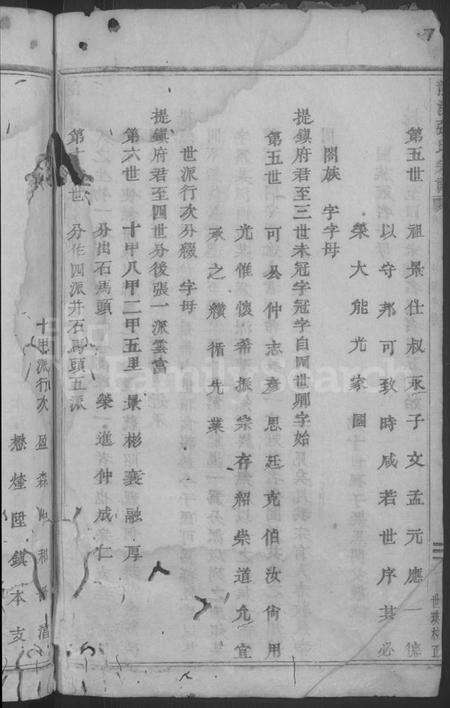 第五世 祖景仕叔永子文孟元應一德
以守邦可致時咸若世序其必
榮大能光家國
闔族 字字母
提鎮府君至三世未冠字冠字自四世興字始
第五世 可公仲志彥思廷克伯汝尚用
光惟懷希振宗存紹崇道允宜
承之纘循先業
世派行次分綴 字母
提鎮府君至四世分後張一派雲富
第六世 十甲八甲二甲五里 景彬襄融厚
分出石馬頭 榮進仲成仁
世 分作四派并石馬頭五派
十思派行次 盈森 和 清
懋煃 鎮本支
世 校正
FamilySearch